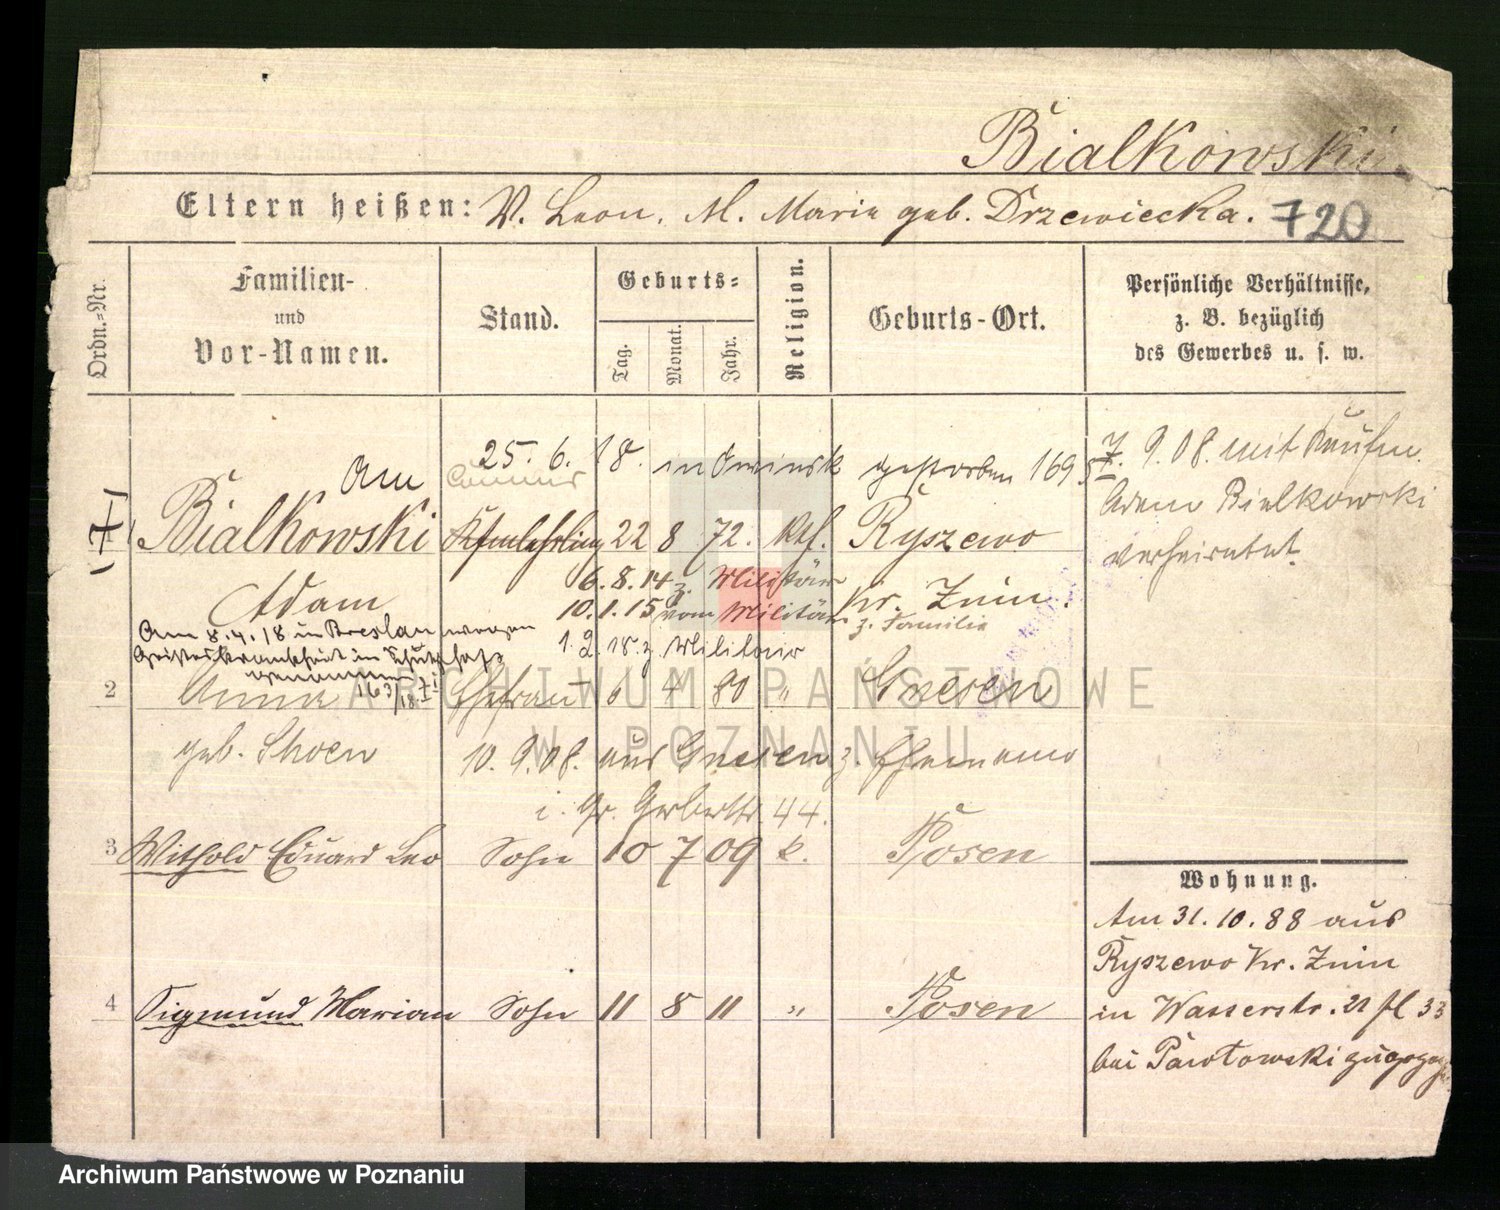 Bialkowski.
Eltern heißen: V. Leon. M. Maria geb. Drzewiecka. 720
Ordn.-Nr.
Familien-
und
Vor-Namen.
Stand.
Geburts-
Tag.
Monat.
Jahr.
Religion.
Geburts-Ort.
Persönliche Verhältnisse,
z. B. bezüglich
des Gewerbes u. s. w.
Am 25. 6. 18. in Owinsk gestorben 169
7. 9. 08. mit Kaufm.
Adam Bialkowski
verheiratet.
Bialkowski Kfmlehrling 22 8 72. kth. Ryszewo
Adam
6. 8. 14 z. Militär
Kr. Znin.
10. 1. 15 vom Militär
z. Familie
1. 2. 18. z. Militair
Am 8. 4. 18 in Breslau wegen
Geisteskrankheit in Schutzhaft
genommen 163/18
2 Anna Ehefrau 6 4 80 " Gnesen
geb. Skoen
10. 9. 08. aus Gnesen z. Ehemann
i. Gr. Gerberstr. 44.
3 Withold Eduard Leo Sohn 10 7 09 k. Posen
4 Sigmund Marian Sohn 11 8 11 " Posen
Wohnung.
Am 31. 10. 88 aus
Ryszewo Kr. Znin
in Wasserstr. 21 fl 33
bei Pawlowski zugezogen
ARCHIWUM PAŃSTWOWE
W POZNANIU
Archiwum Państwowe w Poznaniu